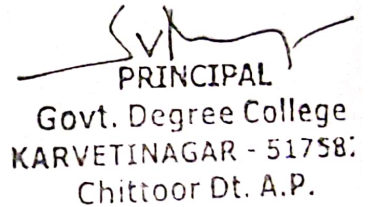 PRINCIPAL
Govt. Degree College
KARVETINAGAR - 51758:
Chittoor Dt. A.P.